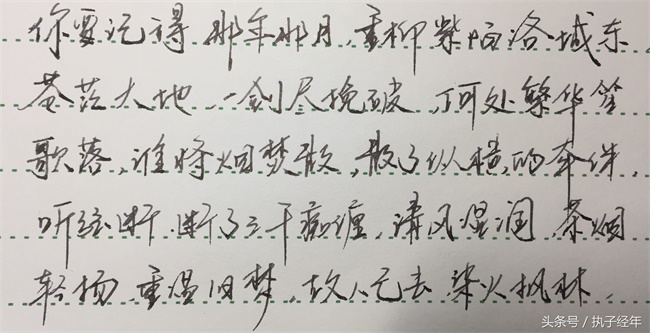 你要记得那年那月,垂柳紫陌洛城东
苍茫大地一剑尽挽破,何处繁华笙
歌落,谁将烟梦散,散了纵横的牵绊,
听弦断,断了三千痴缠,清风湿润,茶烟
轻扬,重温旧梦,故人已去,染火枫林,
头条号/执子经年